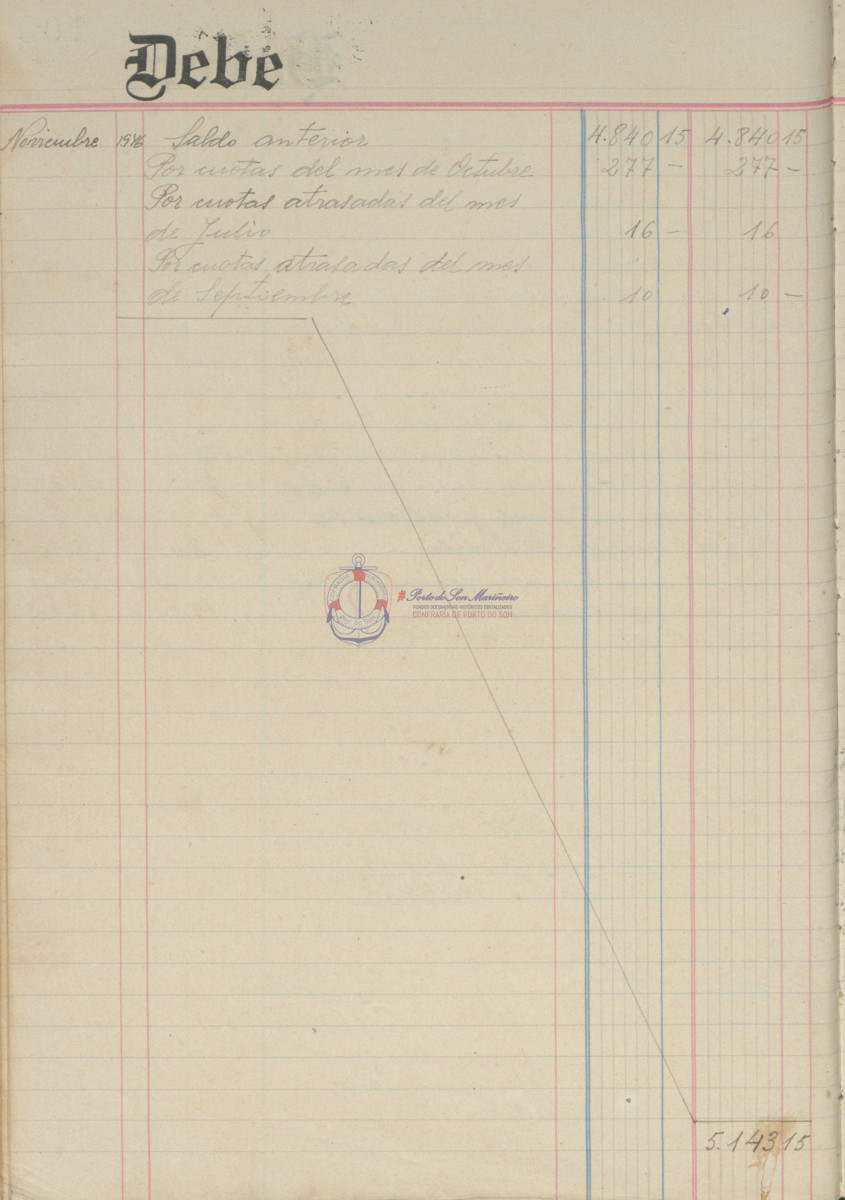 Debe
Noviembre 1946 Saldo anterior 4.840 15 4.840 15
Por cuotas del mes de Octubre 277 – 277 –
Por cuotas atrasadas del mes
de Julio 16 – 16
Por cuotas atrasadas del mes
de Septiembre 10 10 –
#Porto do Son Mariñeiro
FONDOS DOCUMENTAIS HISTÓRICOS DIXITALIZADOS
CONFRARÍA DE PORTO DO SON
5.143 15